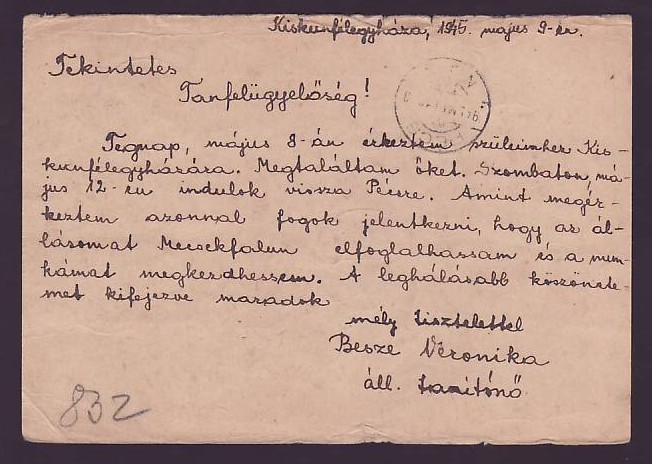 Kiskunfélegyháza, 1945. május 9-én.
Tekintetes
Tanfelügyelőség!
Tegnap, május 8-án érkeztem szüleimhez Kis-
kunfélegyházára. Megtaláltam őket. Szombaton, má-
jus 12-én indulok vissza Pécsre. Amint megér-
keztem azonnal fogok jelentkezni, hogy az ál-
lásomat Mecsekfalun elfoglalhassam és a mun-
kámat megkezdhessem. A leghálásabb köszönete-
met kifejezve maradok
mély tisztelettel
Besze Veronika
áll. tanítónő
832